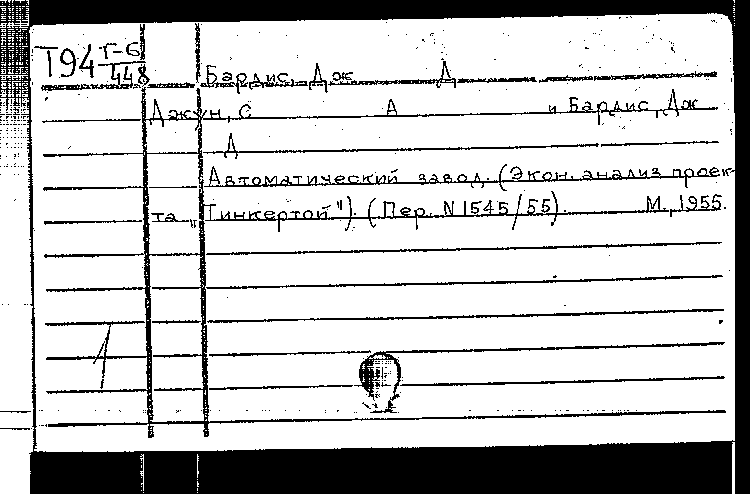 Т94 Т-6
448 Бардис, Дж Д
Джун, С А и Бардис, Дж
Д
Автоматический завод. (Экон. анализ проек-
та „Тинкертой"). (Пер. N 1545/55). М., 1955.
1